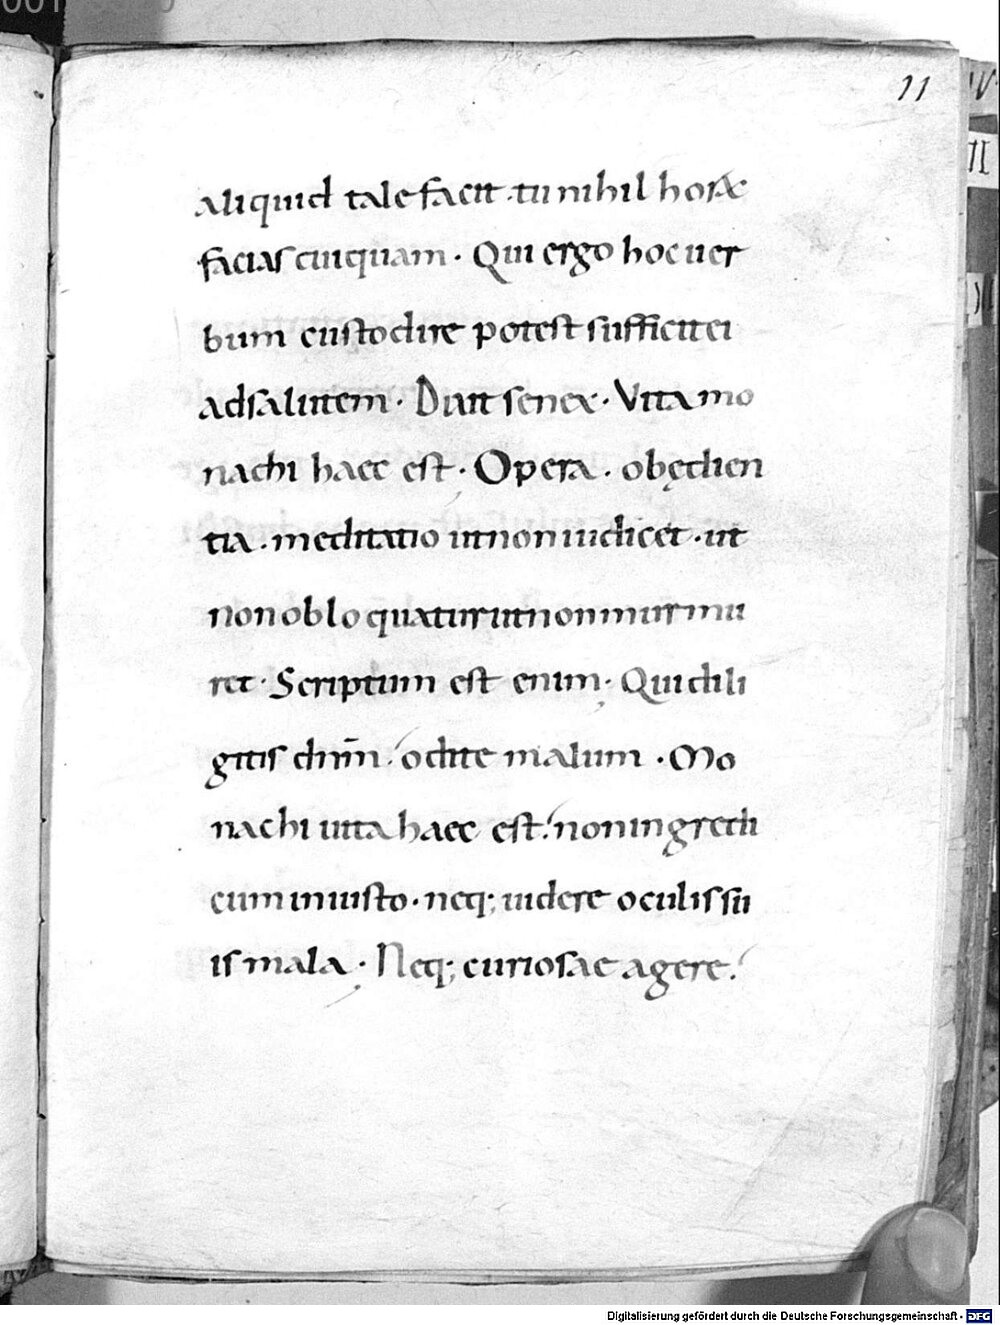 11
aliquid tale facit · tu nihil horæ
facias cuiquam · Qui ergo hoc uer
bum custodire potest sufficit ei
ad salutem · Dixit senex · Vita mo
nachi haec est · Opera · obędien
tia · meditatio ut non iudicet · ut
non obloquatur ut non murmu
ret · Scriptum est enim · Qui dili
gitis dnm̄ odite malum · Mo
nachi uita haec est · non ingredi
cum iniusto · neq; uidere oculis su
is mala · Neq; curiosae agere ·
Digitalisierung gefördert durch die Deutsche Forschungsgemeinschaft - DFG